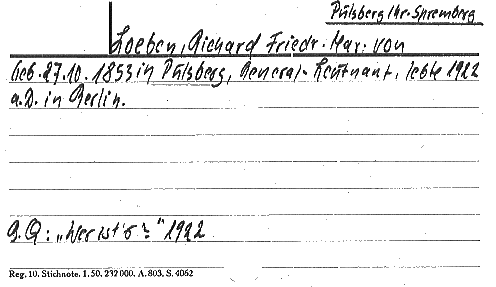 Pulsberg Kr. Spremberg
Loeben, Richard Friedr. Max. von
geb. 27.10. 1853 in Pulsberg, General-Leutnant, lebte 1922
a.D. in Berlin.
B.Q: „Wer ist's?" 1922
Reg. 10. Stichnote. 1. 50. 232 000. A. 803. S. 4062